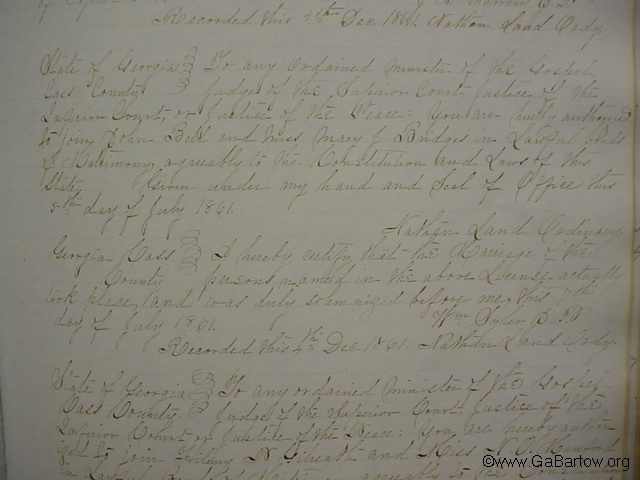 Recorded this 4th Dec. 1861. Nathan Land Ordy
State of Georgia To any ordained minister of the Gospel,
Cass County Judge of the Superior Court Justice of the
Inferior Court, or Justice of the Peace: You are hereby authorized
to join John Bell and Miss Mary J. Bridges in Lawful bonds
of Matrimony, agreeably to the Constitution and Laws of this
State, Given under my hand and Seal of Office this
5th day of July 1861.
Nathan Land Ordinary
Georgia Cass I hereby certify that the Marriage of the
County persons named in the above License, actually
took place, and was duly solemnized before me, this 7th
day of July 1861. Wm Tyler
Recorded this 4th Dec 1861. Nathan Land Ordy.
State of Georgia To any ordained minister of the Gospel,
Cass County Judge of the Superior Court Justice of the
Inferior Court or Justice of the Peace: You are hereby author-
ized to join N. and Miss N. O.
in agreeably to the
©www.GaBartow.org